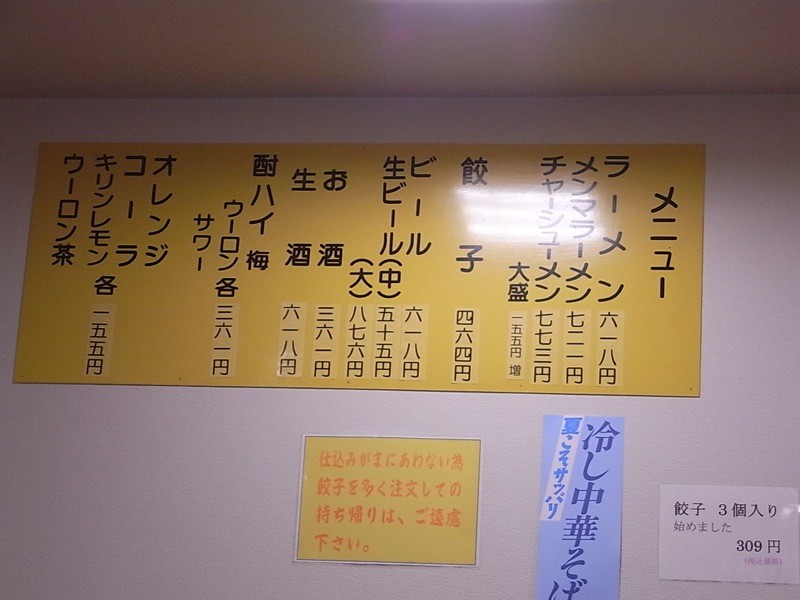 メニュー
ラーメン 六一八円
メンマラーメン 七二一円
チャーシューメン 七七三円
大盛 一五五円 増
餃子 四六四円
ビール 六一八円
生ビール(中) 五十五円
(大) 八七六円
お酒 三六一円
生酒 六一八円
酎ハイ 梅
ウーロン各 三六一円
サワー
オレンジ
コーラ
キリンレモン 各 一五五円
ウーロン茶
仕込みがまにあわない為
餃子を多く注文しての
持ち帰りは、ご遠慮
下さい。
冷し中華そば
夏こそサッパリ
餃子 3個入り
始めました
309円
(税込価格)